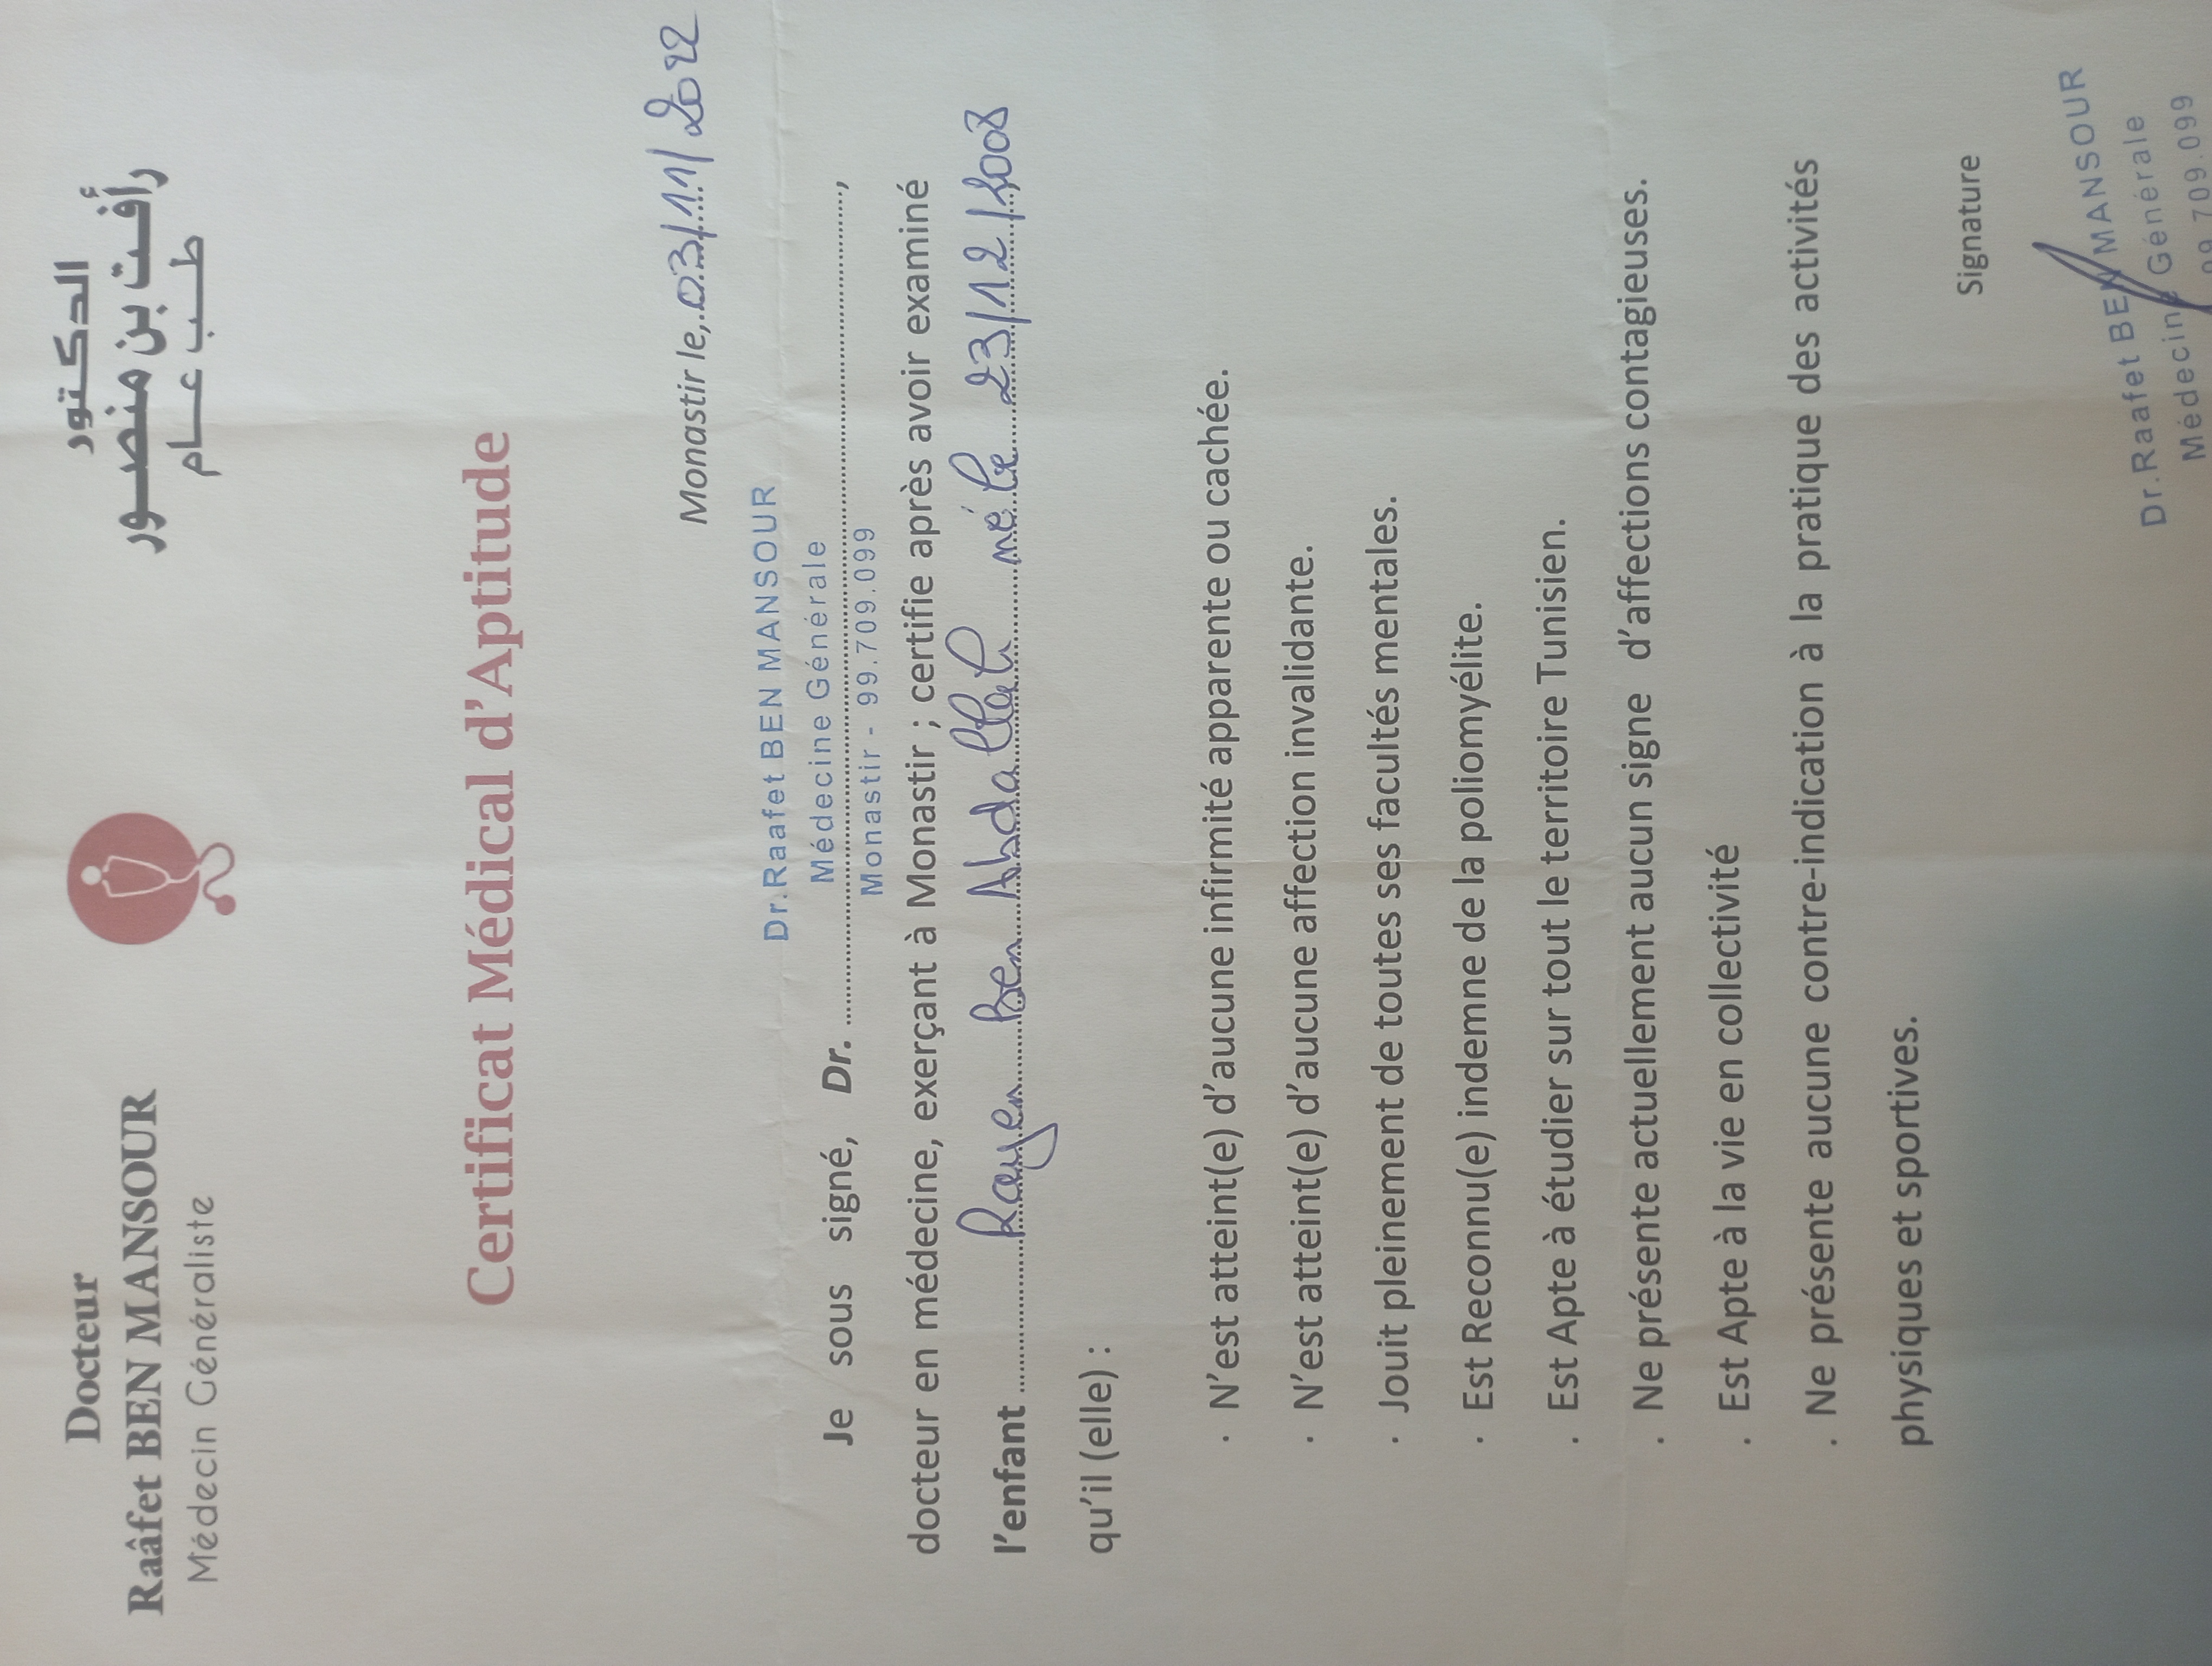 Docteur
Raâfet BEN MANSOUR
Médecin Généraliste
الدكتور
رأفت بن منصور
طب عام
Certificat Médical d'Aptitude
Monastir le, 03/11/2022
Dr.Raafet BEN MANSOUR
Médecine Générale
Monastir - 99.709.099
Je sous signé, Dr. ,
docteur en médecine, exerçant à Monastir ; certifie après avoir examiné
l'enfant Rayen Ben Abdallah né le 23/12/2008
qu'il (elle) :
. N'est atteint(e) d'aucune infirmité apparente ou cachée.
. N'est atteint(e) d'aucune affection invalidante.
. Jouit pleinement de toutes ses facultés mentales.
. Est Reconnu(e) indemne de la poliomyélite.
. Est Apte à étudier sur tout le territoire Tunisien.
. Ne présente actuellement aucun signe d'affections contagieuses.
. Est Apte à la vie en collectivité
. Ne présente aucune contre-indication à la pratique des activités
physiques et sportives.
Signature
Dr.Raafet BEN MANSOUR
Médecine Générale
99.709.099